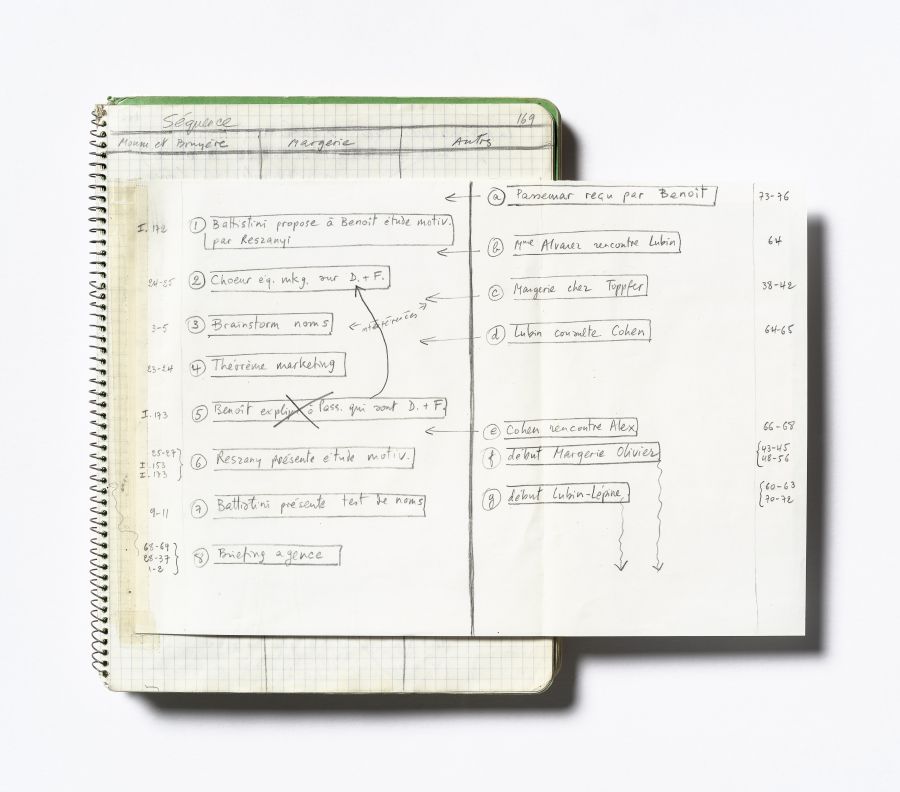 Séquence 169
Mouni et Bruyère Margerie Autres
I. 172 ① Battistini propose à Benoît étude motiv.
par Reszanyi
24-25 ② Choeur éq. mkg. sur D. + F.
3-5 ③ Brainstorm noms
interférences
23-24 ④ Théorème marketing
I. 173 ⑤ Benoît explique à Pass. qui sont D. + F.
25-27
I. 153
I. 173
⑥ Reszany présente étude motiv.
9-11 ⑦ Battistini présente test de noms
68-69
28-37
1-2
⑧ Briefing agence
ⓐ Passemar reçu par Benoît 73-76
ⓑ Mme Alvarez rencontre Lubin 64
ⓒ Margerie chez Töpffer 38-42
ⓓ Lubin consulte Cohen 64-65
ⓔ Cohen rencontre Alex 66-68
ⓕ début Margerie Olivier 43-45
48-56
ⓖ début Lubin-Lépine 60-63
70-72